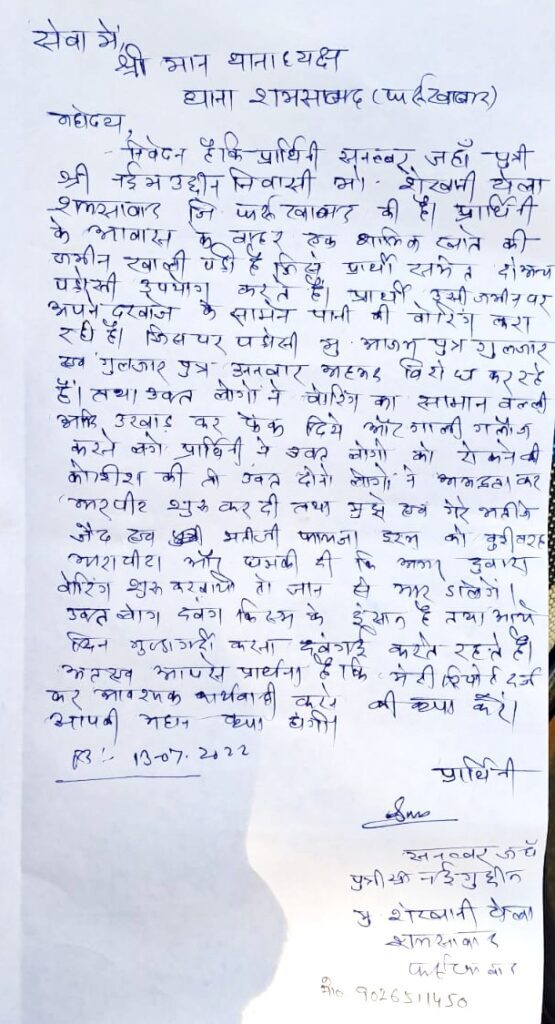 सेवा में,
श्री मान थानाध्यक्ष
थाना शमसाबाद (फर्रुखाबाद)
महोदय,
निवेदन है कि प्रार्थिनी सनव्वर जहाँ पुत्री
श्री नईमउद्दीन निवासी मो० शेखानी थेला
शमसाबाद जि फर्रुखाबाद की है। प्रार्थिनी
के आवास के बाहर एक धार्मिक खाते की
जमीन खाली पडी है जिसे प्रार्थी समेत दो अन्य
पडोसी उपयोग करते है। प्रार्थी इसी जमीन पर
अपने दरवाजे के सामने पानी की वोरिंग करा
रही है। जिस पर पडोसी मु० आजम पुत्र गुलजार
एवं गुलजार पुत्र अनवार अहमद विरोध कर रहे
है। तथा उक्त लोगो ने वोरिंग का सामान वल्ली
आदि उखाड कर फेक दिये और गाली गलौज
करने लगे प्रार्थिनी ने उक्त लोगो को रोकने की
कोशीश की तो उक्त दोनो लोगो ने अभद्रता कर
मारपीट शुरू कर दी तथा मुझे एवं मेरे भतीजे
जैद एवं भतीजी को वुरी तरह
मारा पीटा और धमकी दी कि अगर दुवारा
वोरिंग शुरू करवायी तो जान से मार डालेगें।
उक्त लोग दवंग किस्म के इंसान है तथा आये
दिन गुण्डागर्दी करना दवंगई करते रहते है।
अतएव आपसे प्रार्थना है कि मेरी रिपोर्ट दर्ज
कर आवश्यक कार्यवाही करने की कृपा करें।
आपकी महान कृपा होगी।
13-07-2022
प्रार्थिनी
सनव्वर जहाँ
पुत्री श्री नईमुद्दीन
मु० शेखानी थेला
शमसाबाद
फर्रुखाबाद
मो० 9026511450